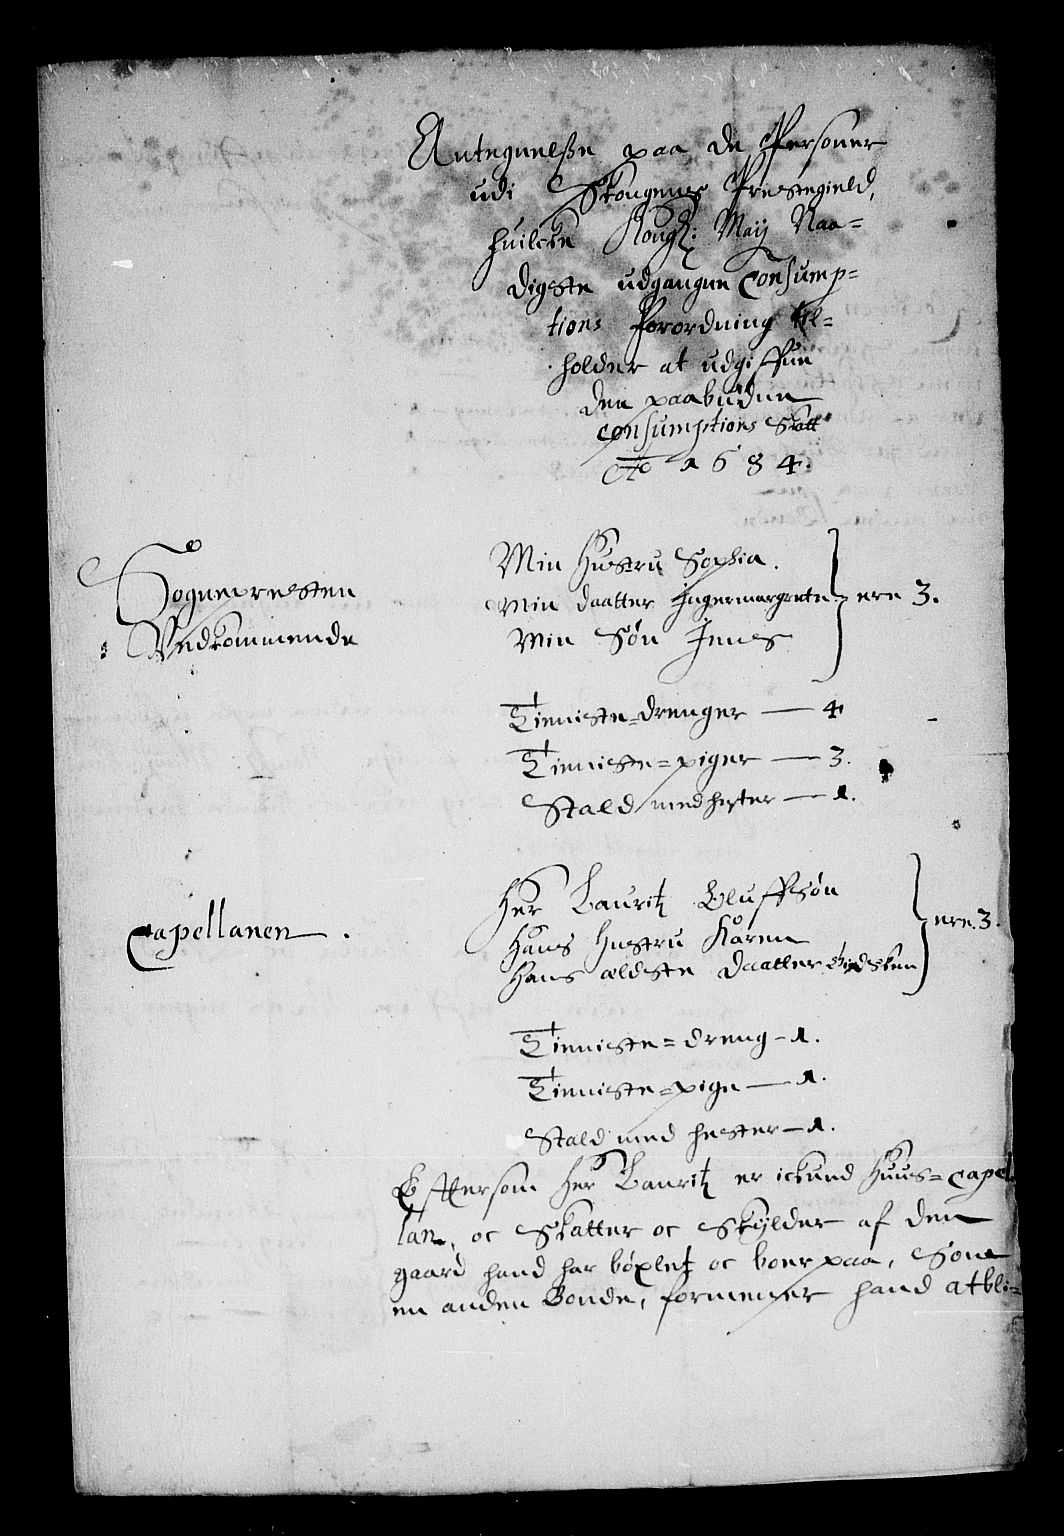 Antegnelsse paa de Personer
udi Skougens Prestegield,
huilcke Kongl: Maÿ Naa=
digste udgangne Consump=
tions Forordning til=
holder at udgiffue
den paabudne
Consumptions Skatt
Ao 1684.
Sognepresten
Vedkommende
Min Hustru Sophia.
Min daatter Ingermargrete
Min Søn Jens
ere 3.
Tieniste=drenger — 4
Tieniste=piger — 3.
Stald med hester — 1.
Capellanen.
Her Lauritz Oluffsøn
Hans Hustru Karen
Hans ældste daatter
ere 3.
Tieniste=dreng — 1.
Tieniste=pige — 1.
Stald med hester — 1.
Effttersom Her Lauritz er ickund Huus=Capel
lan, oc Skatter oc Skylder af den
gaard hand har bøxlet oc boer paa, Som
en anden Bonde, formener hand at bli=